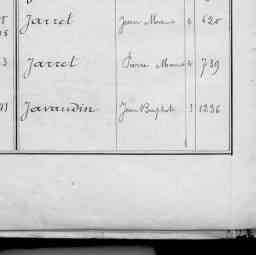 Jarret Jean Marie 620
3 Jarret Pierre Marie 739
Javaudin Jean Baptiste 3 1236